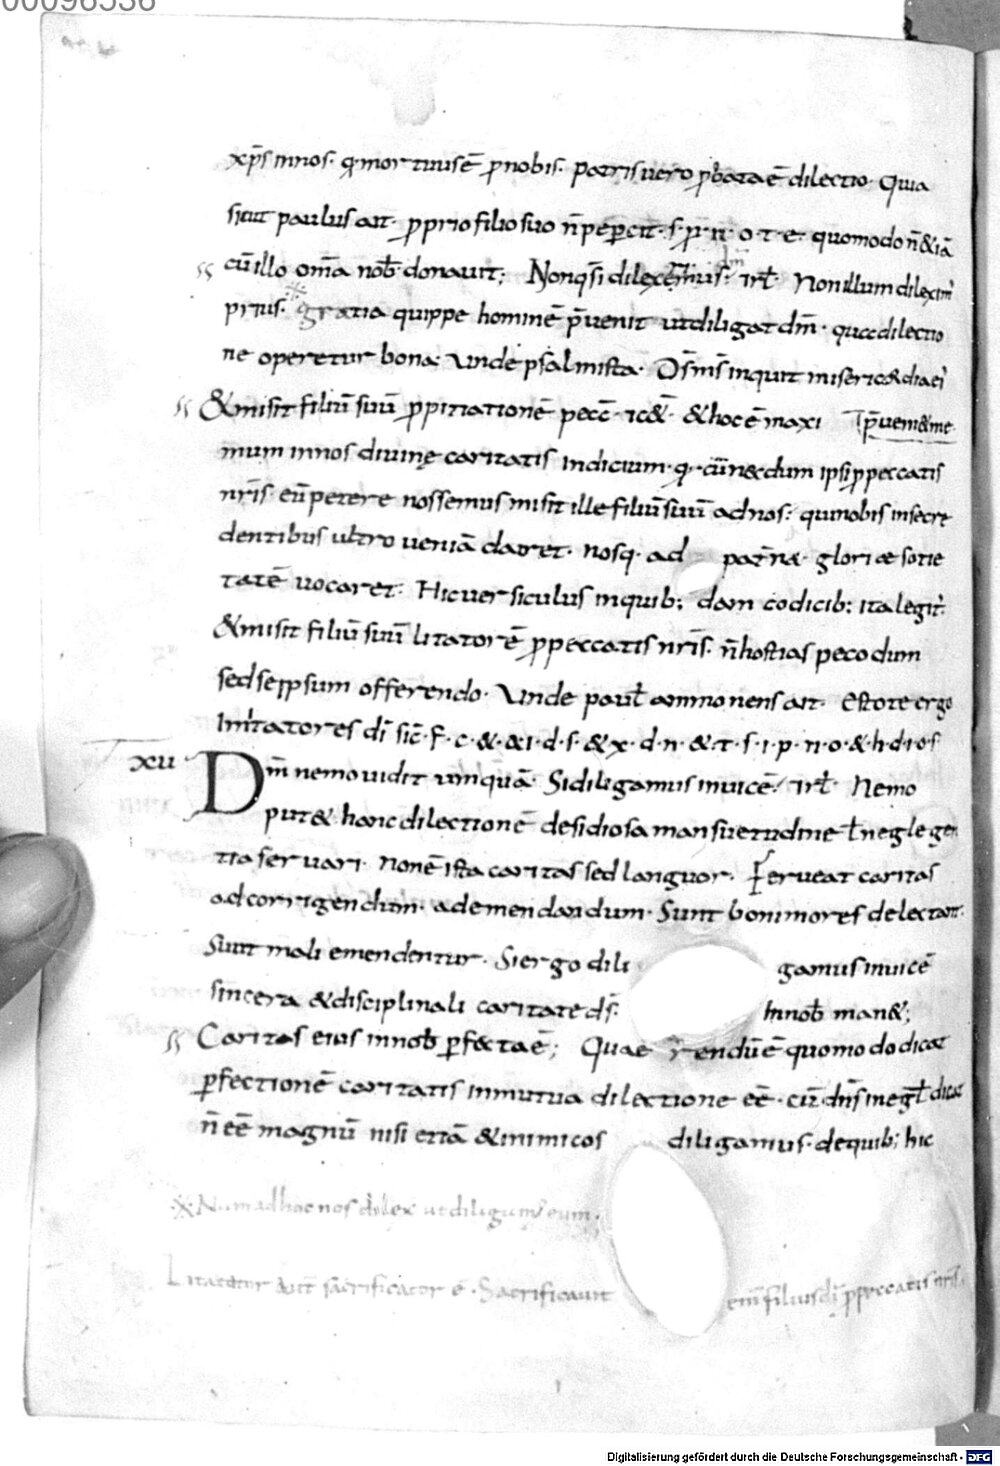 00096536
xp̄s innos. q mortuus ē p nobis. patris uero pbata ē dilectio. Quia
sicut paulus ait. pprio filio suo n̄ pepcit. s. p. n. o. t. e. quomodo n̄ & iā
cū illo om̄a nob̄ donauit; Non q̄si dilexerimus dm̄ . Non illum dilexim̄
prius. gratia quippe hominē p̄uenit ut diligat dm̄. qua dilectio
ne operetur bona. Unde psalmista. D̄s m̄s inquit misericordia ei
p̄ueni& me.
& misit filiū suū ppitiationē pecc̄. & hoc ē maxi
mum innos diuinę caritatis indicium. q. cū n& dum ipsi p peccatis
nr̄is eū petere nossemus misit ille filiū suū ad nos. qui nobis in se cre
dentibus ultro ueniā daret. nosq. ad patnę glorię socie
tatē uocaret. Hic uersiculus in quib; dam codicib; ita legit̄.
& misit filiū suū litatorē p peccatis nr̄is. n̄ hostias pecodum
sed se ipsum offerendo. Unde paul ammonens ait. Estote ergo
Imitatores dī sic̄. f. c. &. &. I. d. s. & x. d. n. & t. s. i. p. n. o. & h. d. i. o. s
xu Dm̄ nemo uidit umquā. Si diligamus inuicē. Nemo
put& hanc dilectionē desidiosa mansuetudine ł neglegen
tia seruari. Non ē ista caritas sed languor. Ferueat caritas
ad corrigendum. ad emendandum. Sunt boni mores delectant.
Sunt mali emendentur. Si ergo dili gamus inuicē
sincera & disciplinali caritate ds̄ Innob̄ man&;
Caritas eius innob̄ pfecta ē; Quaerendū ē quomodo dicat
pfectionē caritatis in mutua dilectione eē. cū dn̄s in euḡł dicat
n̄ eē magnū nisi etiā & inimicos diligamus. de quib; hic
Num ad hoc nos dilex ut diligamus eum.
Litatatur aut̄ sacrificator ē. Sacrificauit enī filius dī p peccatis nr̄is.
Digitalisierung gefördert durch die Deutsche Forschungsgemeinschaft - DFG